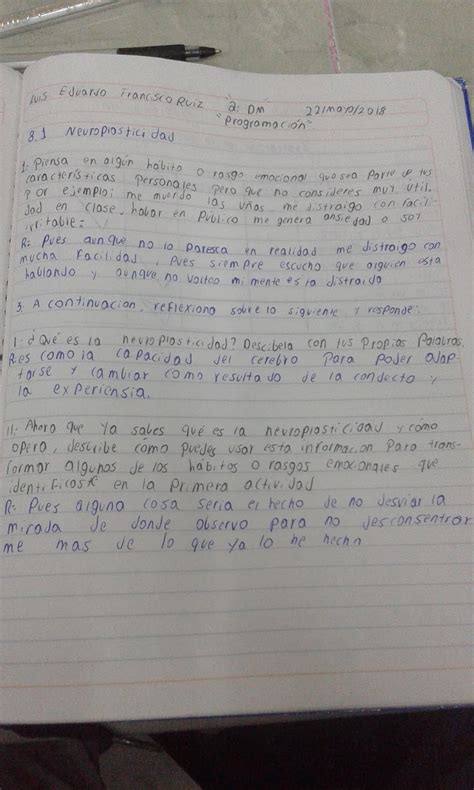 Luis Eduardo Francisco Ruiz 2: DM 22/mayo/2018
"Programación"
8.1 Neuroplasticidad
1: Piensa en algún hábito o rasgo emocional que sea parte de tus
características personales pero que no consideres muy útil.
Por ejemplo: me muerdo las uñas, me distraigo con facili-
dad en clase, hablar en público me genera ansiedad o soy
irritable:
R: Pues aunque no lo paresca en realidad me distraigo con
mucha facilidad, pues siempre escucho que alguien esta
hablando y aunque no volteo mi mente esta distraida
3. A continuación, reflexiona sobre lo siguiente y responde:
I- ¿Qué es la neuroplasticidad? Descríbela con tus propias palabras.
R: es como la capacidad del cerebro para poder adap-
tarse y cambiar como resultado de la conducta y
la experiensia.
II- Ahora que ya sabes qué es la neuroplasticidad y cómo
opera, describe cómo puedes usar esta información para trans-
formar algunos de los hábitos o rasgos emocionales que
identificaste en la primera actividad
R: Pues alguna cosa seria el hecho de no desviar la
mirada de donde observo para no desconsentrar
me mas de lo que ya lo he hecho